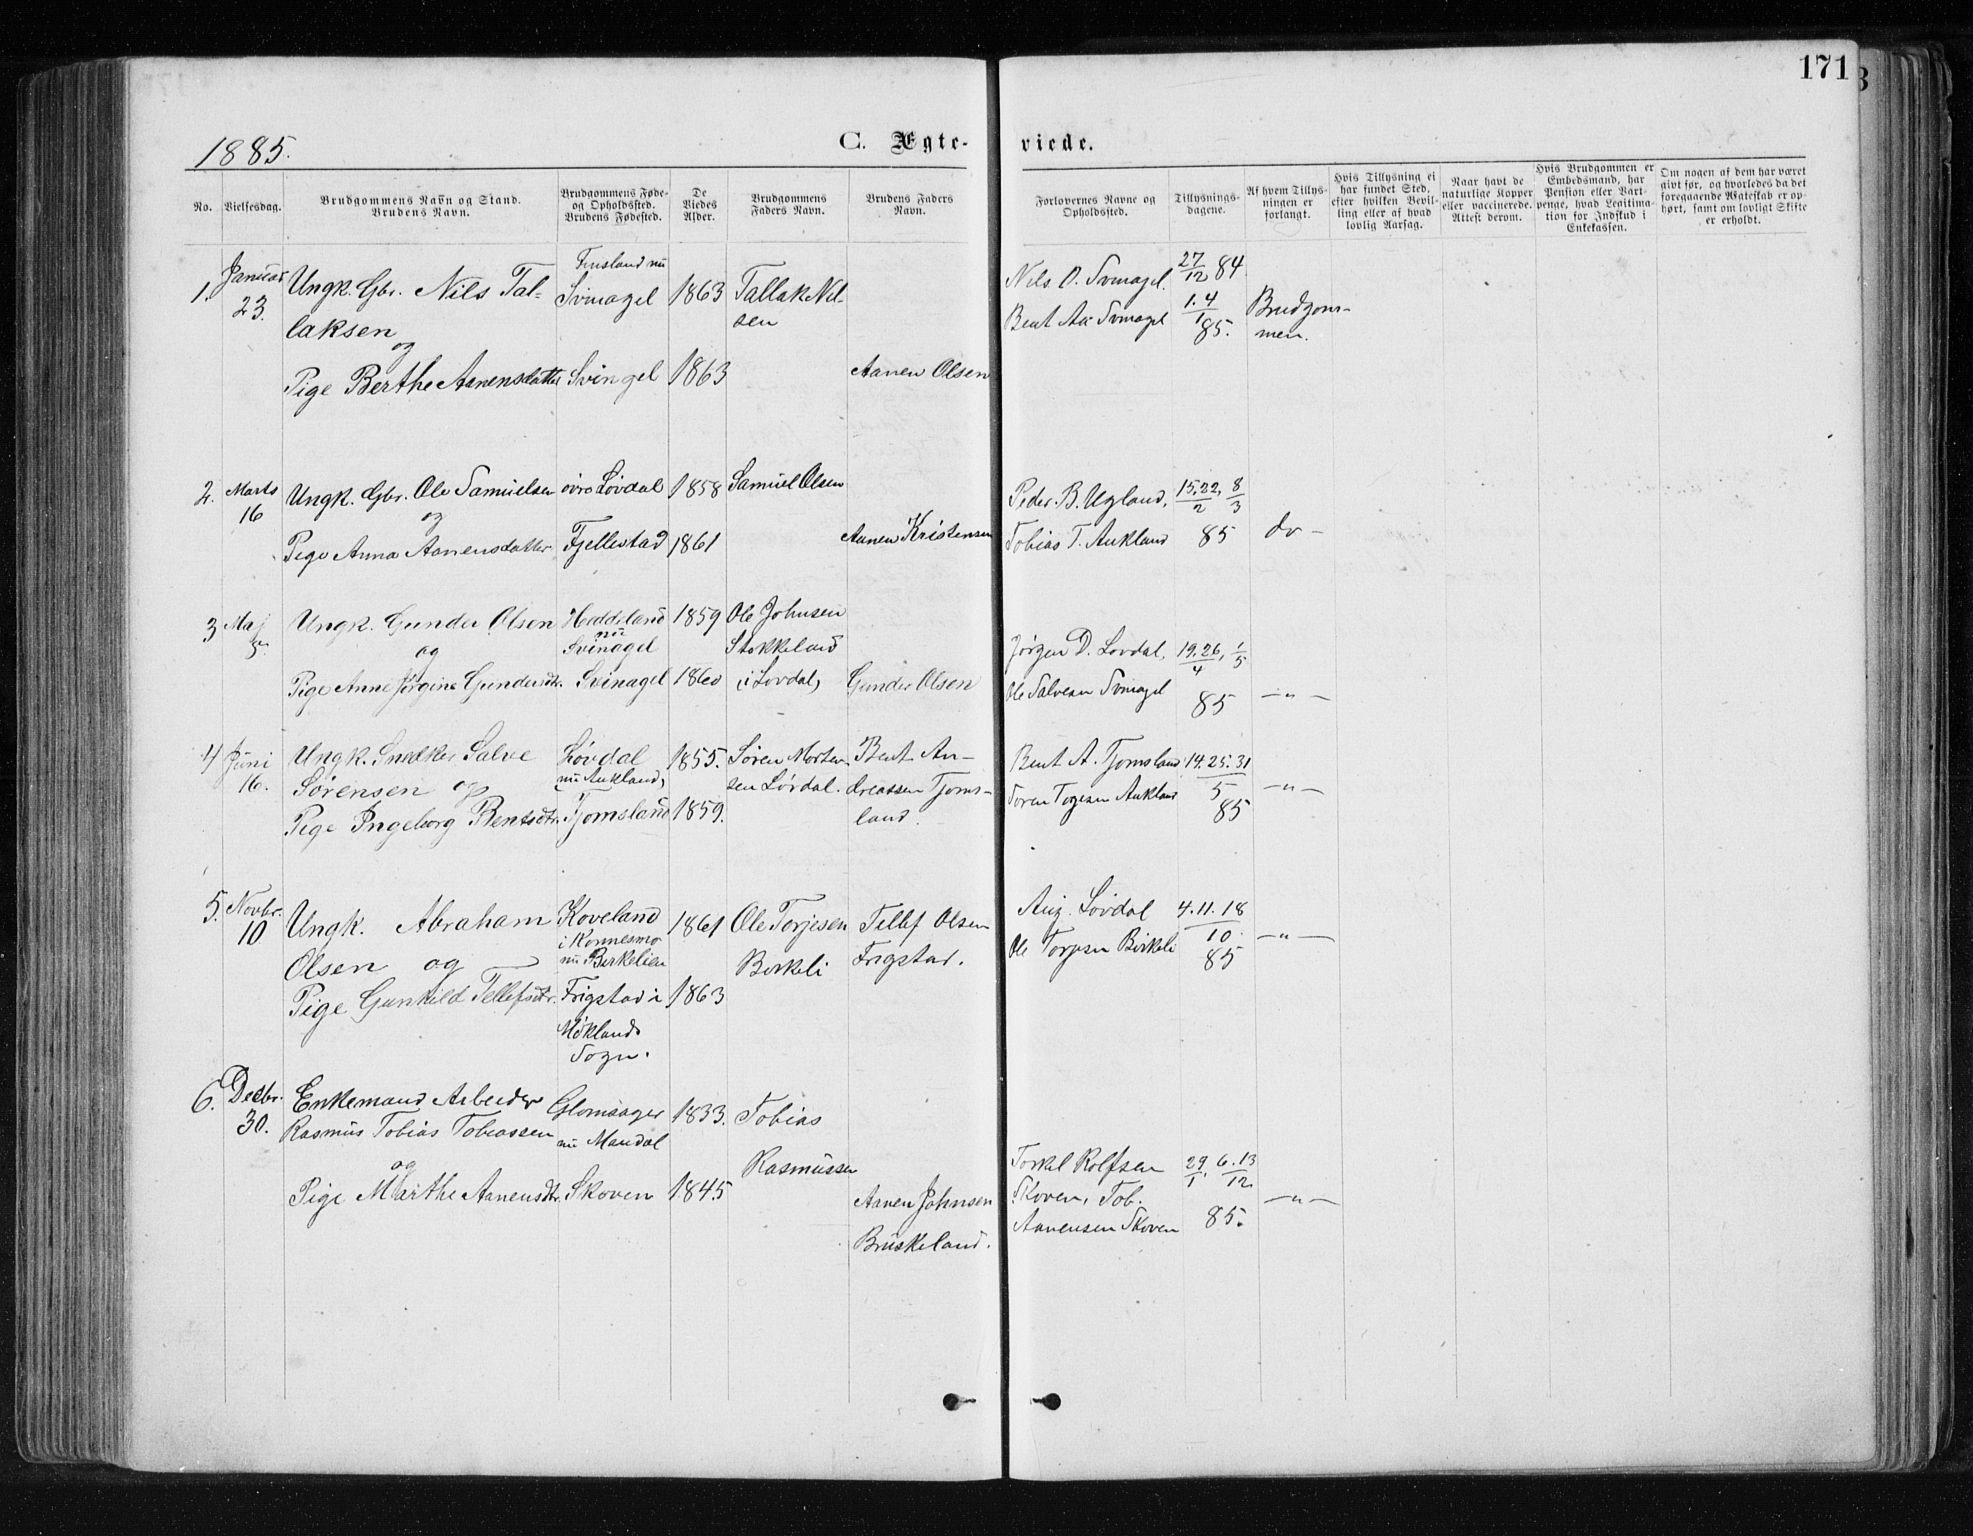 171
1885.
C. Ægte-
viede.
No.
Vielsesdag.
Brudgommens Navn og Stand.
Brudens Navn.
Brudgommens Føde-
og Opholdssted.
Brudens Fødested.
De
Viedes
Alder.
Brudgommens
Faders Navn.
Brudens Faders
Navn.
Forlovernes Navne og
Opholdssted.
Tillysnings-
dagene.
Af hvem Tillys-
ningen er
forlangt.
Hvis Tillysning ei
har fundet Sted,
efter hvilken Bevil-
ling eller af hvad
lovlig Aarsag.
Naar havt de
naturlige Kopper
eller vaccinerede.
Attest derom.
Hvis Brudgommen er
Embedsmand, har
Pension eller Vart-
penge, hvad Legitima-
tion for Indskud i
Enkekassen.
Om nogen af dem har været
givt før, og hvorledes da det
foregaaende Ægteskab er op-
hørt, samt om lovligt Skifte
er erholdt.
1.
Januar
23.
Ungk. Gbr. Nils Tal-
laksen
og
Pige Berthe Aanensdatter
Finsland nu
Svinagel
Svingel
1863
1863
Tallak Nil-
sen
Aanen Olsen
Nils O. Svinagel.
Bent Aa Svinagel
27/12 84
1. 4/1 85.
Brudgom-
men.
2.
Marts
16
Ungk. Gbr. Ole Samuelsen
og
Pige Anna Aanensdatter
øvre Løvdal
Fjellestad
1858
1861
Samuel Olsen
Aanen Kristensen
Peder B. Ugland,
Tobias T. Aukland
15.22/2, 8/3
85
do -
3
Maj
Ungk. Gunder Olsen
og
Pige Anne Jørgine Gundersdtr.
Heddeland
nu
Svinagel
Svinagel
1859
1860
Ole Johnsen
Stokkeland
(i Lovdal)
Gunder Olsen
Jørgen D. Lovdal,
Ole Salvesen Svinagel
19.26/4, 1/5
85
-"-
4
Juni
16.
Ungk. Snedker Salve
Sørensen og
Pige Ingeborg Bentsdtr.
Løvdal
nu Aukland,
Tjomsland
1855.
1859.
Søren Morten-
sen Løvdal.
Bent An-
dreassen Tjoms-
land.
Bent A. Tjomsland
Soren Togesen Aukland
14.25.31
5
85
-"-
5.
Novbr.
10
Ungk. Abraham
Olsen og
Pige Gunhild Tellefsdtr.
Koveland
i Konnesmo
nu Birkelien
Frigstad i
Møklands
Sogn.
1861
1863
Ole Torjesen
Birkeli
Tellef Olsen
Frigstad.
Aug. Løvdal
Ole Torjesen Birkeli
4.11.18
10
85
-"-
6.
Decbr.
30.
Enkemand Arbeider
Rasmus Tobias Tobiassen
og
Pige Marthe Aanensdtr.
Glomsager
nu Mandal
Skoven
1833.
1845
Tobias
Rasmussen
Aanen Johnsen
Bruskeland.
Torkel Rolfsen
Skoven, Tob.
Aanensen Skoven
29/1, 6.13/12
85.
-"-